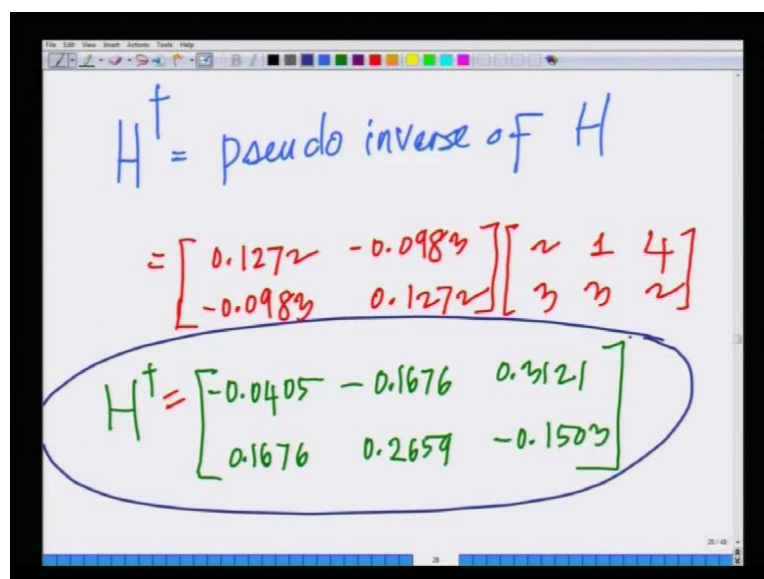 File Edit View Insert Actions Tools Help
H† = pseudo inverse of H
= [ 0.1272 -0.0983 ] [ 2 1 4 ]
[ -0.0983 0.1272 ] [ 3 3 2 ]
H† = [ -0.0405 -0.1676 0.3121 ]
[ 0.1676 0.2659 -0.1503 ]
28 / 48
28